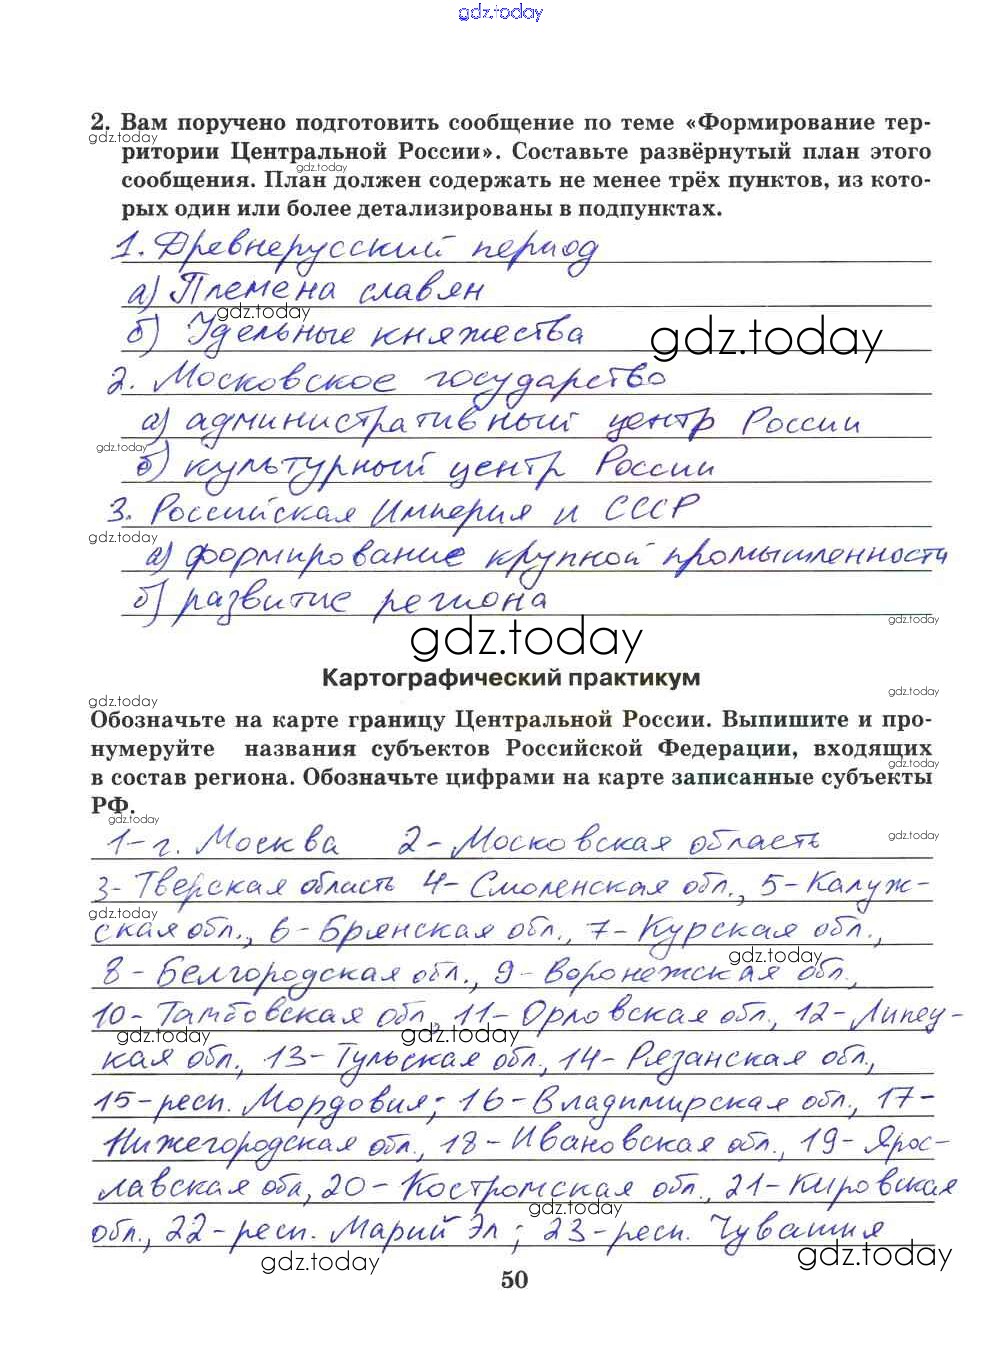 gdz.today
2. Вам поручено подготовить сообщение по теме «Формирование тер-
gdz.today
ритории Центральной России». Составьте развёрнутый план этого
gdz.today
сообщения. План должен содержать не менее трёх пунктов, из кото-
рых один или более детализированы в подпунктах.
1. Древнерусский период
а) Племена славян
gdz.today
б) Удельные княжества
gdz.today
2. Московское государство
а) административный центр России
gdz.today
б) культурный центр России
3. Российская Империя и СССР
gdz.today
а) формирование крупной промышленности
б) развитие региона
gdz.today
gdz.today
Картографический практикум
gdz.today
gdz.today
Обозначьте на карте границу Центральной России. Выпишите и про-
нумеруйте названия субъектов Российской Федерации, входящих
gdz.today
в состав региона. Обозначьте цифрами на карте записанные субъекты
РФ.
gdz.today
1-г. Москва 2-Московская область
gdz.today
3-Тверская область 4-Смоленская обл., 5-Калуж-
gdz.today
ская обл., 6-Брянская обл., 7-Курская обл.,
gdz.today
8-Белгородская обл., 9-Воронежская обл,
10-Тамбовская обл, 11-Орловская обл., 12-Липец-
gdz.today gdz.today
кая обл., 13-Тульская обл., 14-Рязанская обл.,
15-респ. Мордовия; 16-Владимирская обл., 17-
Нижегородская обл., 18-Ивановская обл., 19-Ярос-
лавская обл, 20-Костромская обл., 21-Кировская
gdz.today
обл., 22-респ. Марий Эл; 23-респ. Чувашия
gdz.today gdz.today
50